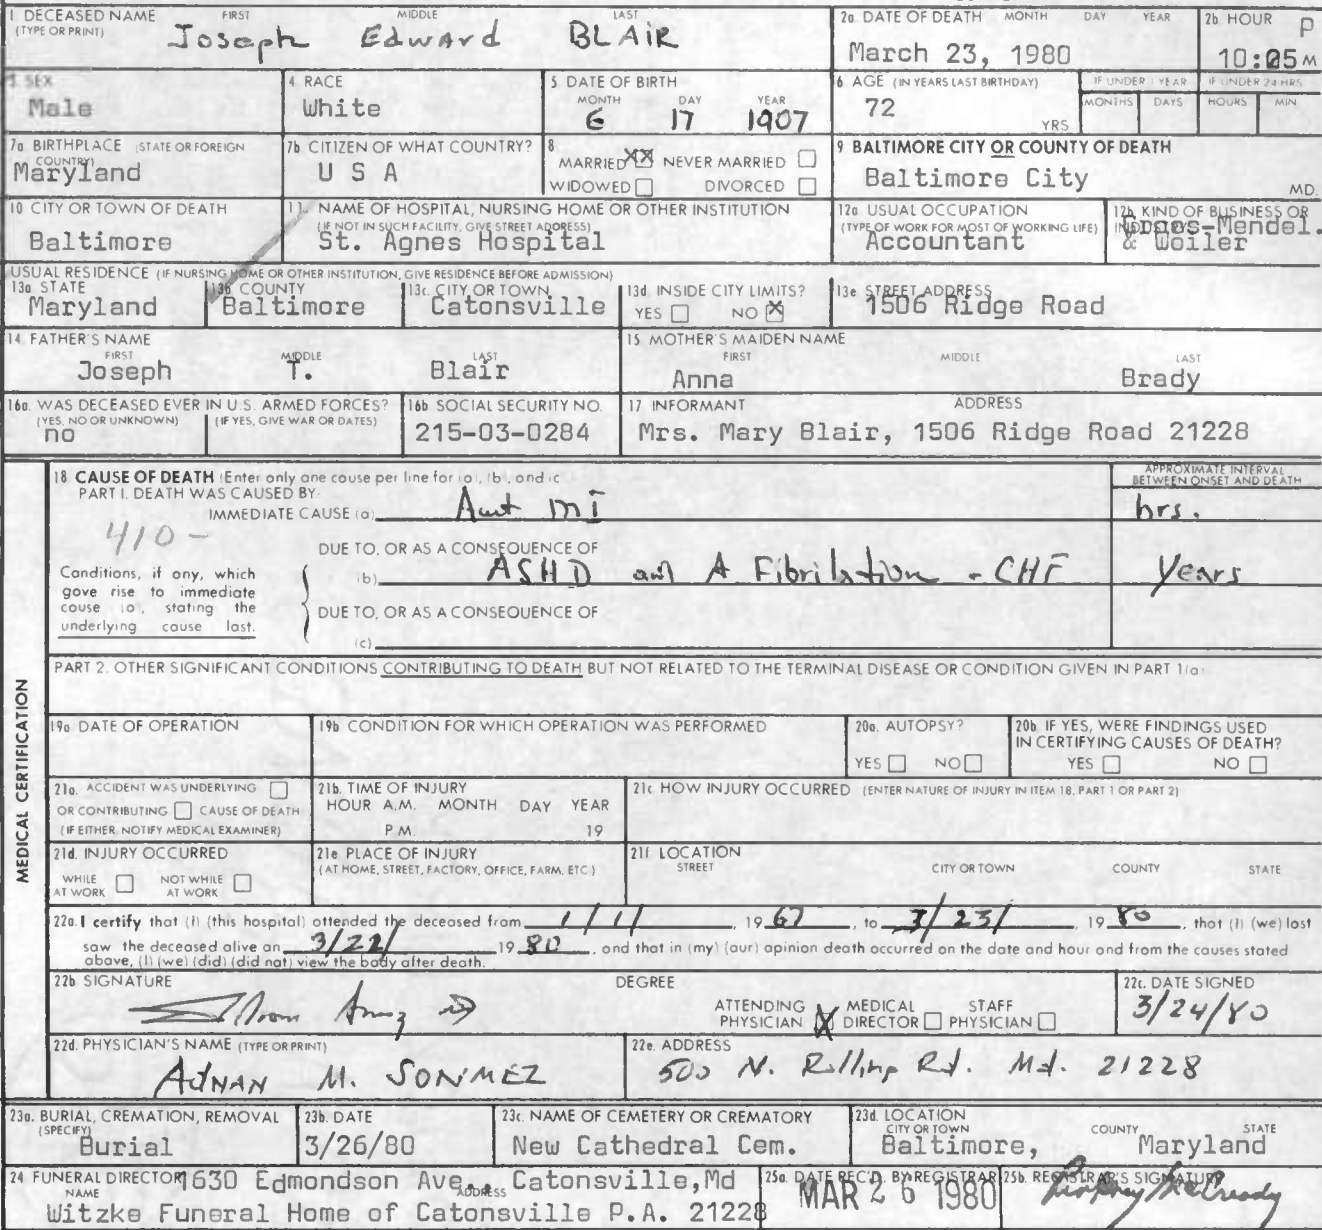 1. DECEASED NAME FIRST MIDDLE LAST
(TYPE OR PRINT) Joseph Edward BLAIR
2a DATE OF DEATH MONTH DAY YEAR
March 23, 1980
2b HOUR P
10:05 M
3 SEX
Male
4 RACE
White
5 DATE OF BIRTH
MONTH DAY YEAR
6 17 1907
6 AGE (IN YEARS LAST BIRTHDAY)
72 YRS
IF UNDER 1 YEAR
MONTHS DAYS
IF UNDER 24 HRS
HOURS MIN.
7a BIRTHPLACE (STATE OR FOREIGN
COUNTRY)
Maryland
7b CITIZEN OF WHAT COUNTRY?
U S A
8
MARRIED XX NEVER MARRIED
WIDOWED DIVORCED
9 BALTIMORE CITY OR COUNTY OF DEATH
Baltimore City MD.
10 CITY OR TOWN OF DEATH
Baltimore
11. NAME OF HOSPITAL, NURSING HOME OR OTHER INSTITUTION
(IF NOT IN SUCH FACILITY, GIVE STREET ADDRESS)
St. Agnes Hospital
12a USUAL OCCUPATION
(TYPE OF WORK FOR MOST OF WORKING LIFE)
Accountant
12b KIND OF BUSINESS OR
-Mendel.
& Woiler
USUAL RESIDENCE (IF NURSING HOME OR OTHER INSTITUTION, GIVE RESIDENCE BEFORE ADMISSION)
13a STATE
Maryland
13b COUNTY
Baltimore
13c. CITY OR TOWN
Catonsville
13d. INSIDE CITY LIMITS?
YES NO X
13e STREET ADDRESS
1506 Ridge Road
14 FATHER'S NAME
FIRST MIDDLE LAST
Joseph T. Blair
15 MOTHER'S MAIDEN NAME
FIRST MIDDLE LAST
Anna Brady
16a. WAS DECEASED EVER IN U.S. ARMED FORCES?
(YES, NO OR UNKNOWN) (IF YES, GIVE WAR OR DATES)
no
16b SOCIAL SECURITY NO.
215-03-0284
17 INFORMANT ADDRESS
Mrs. Mary Blair, 1506 Ridge Road 21228
MEDICAL CERTIFICATION
18 CAUSE OF DEATH (Enter only one cause per line for (a), (b), and (c)
PART I. DEATH WAS CAUSED BY:
APPROXIMATE INTERVAL
BETWEEN ONSET AND DEATH
IMMEDIATE CAUSE (a) MI hrs.
410-
DUE TO, OR AS A CONSEQUENCE OF
(b) ASHD and A Fibrilation - CHF Years
Conditions, if any, which
gave rise to immediate
cause (a), stating the
underlying cause last.
DUE TO, OR AS A CONSEQUENCE OF
(c)
PART 2. OTHER SIGNIFICANT CONDITIONS CONTRIBUTING TO DEATH BUT NOT RELATED TO THE TERMINAL DISEASE OR CONDITION GIVEN IN PART 1(a)
19a DATE OF OPERATION
19b CONDITION FOR WHICH OPERATION WAS PERFORMED
20a. AUTOPSY?
YES NO
20b IF YES, WERE FINDINGS USED
IN CERTIFYING CAUSES OF DEATH?
YES NO
21a. ACCIDENT WAS UNDERLYING
OR CONTRIBUTING CAUSE OF DEATH
(IF EITHER, NOTIFY MEDICAL EXAMINER)
21b. TIME OF INJURY
HOUR A.M. MONTH DAY YEAR
P.M. 19
21c HOW INJURY OCCURRED (ENTER NATURE OF INJURY IN ITEM 18, PART 1 OR PART 2)
21d. INJURY OCCURRED
WHILE AT WORK NOT WHILE AT WORK
21e PLACE OF INJURY
(AT HOME, STREET, FACTORY, OFFICE, FARM, ETC)
21f LOCATION
STREET CITY OR TOWN COUNTY STATE
22a. I certify that (I) (this hospital) attended the deceased from 1/1/ 1967, to 3/23/ 1980, that (I) (we) last
saw the deceased alive on 3/22/ 1980, and that in (my) (our) opinion death occurred on the date and hour and from the causes stated
above, (I) (we) (did) (did not) view the body after death.
22b SIGNATURE DEGREE
ATTENDING PHYSICIAN X MEDICAL DIRECTOR STAFF PHYSICIAN
22c. DATE SIGNED
3/24/80
22d. PHYSICIAN'S NAME (TYPE OR PRINT)
ADNAN M. SONMEZ
22e. ADDRESS
500 N. Rolling Rd. Md. 21228
23a. BURIAL, CREMATION, REMOVAL
(SPECIFY)
Burial
23b. DATE
3/26/80
23c. NAME OF CEMETERY OR CREMATORY
New Cathedral Cem.
23d. LOCATION
CITY OR TOWN COUNTY STATE
Baltimore, Maryland
24 FUNERAL DIRECTOR 1630 Edmondson Ave., Catonsville, Md
NAME ADDRESS
Witzke Funeral Home of Catonsville P.A. 21228
25a. DATE REC'D. BY REGISTRAR
MAR 26 1980
25b. REGISTRAR'S SIGNATURE